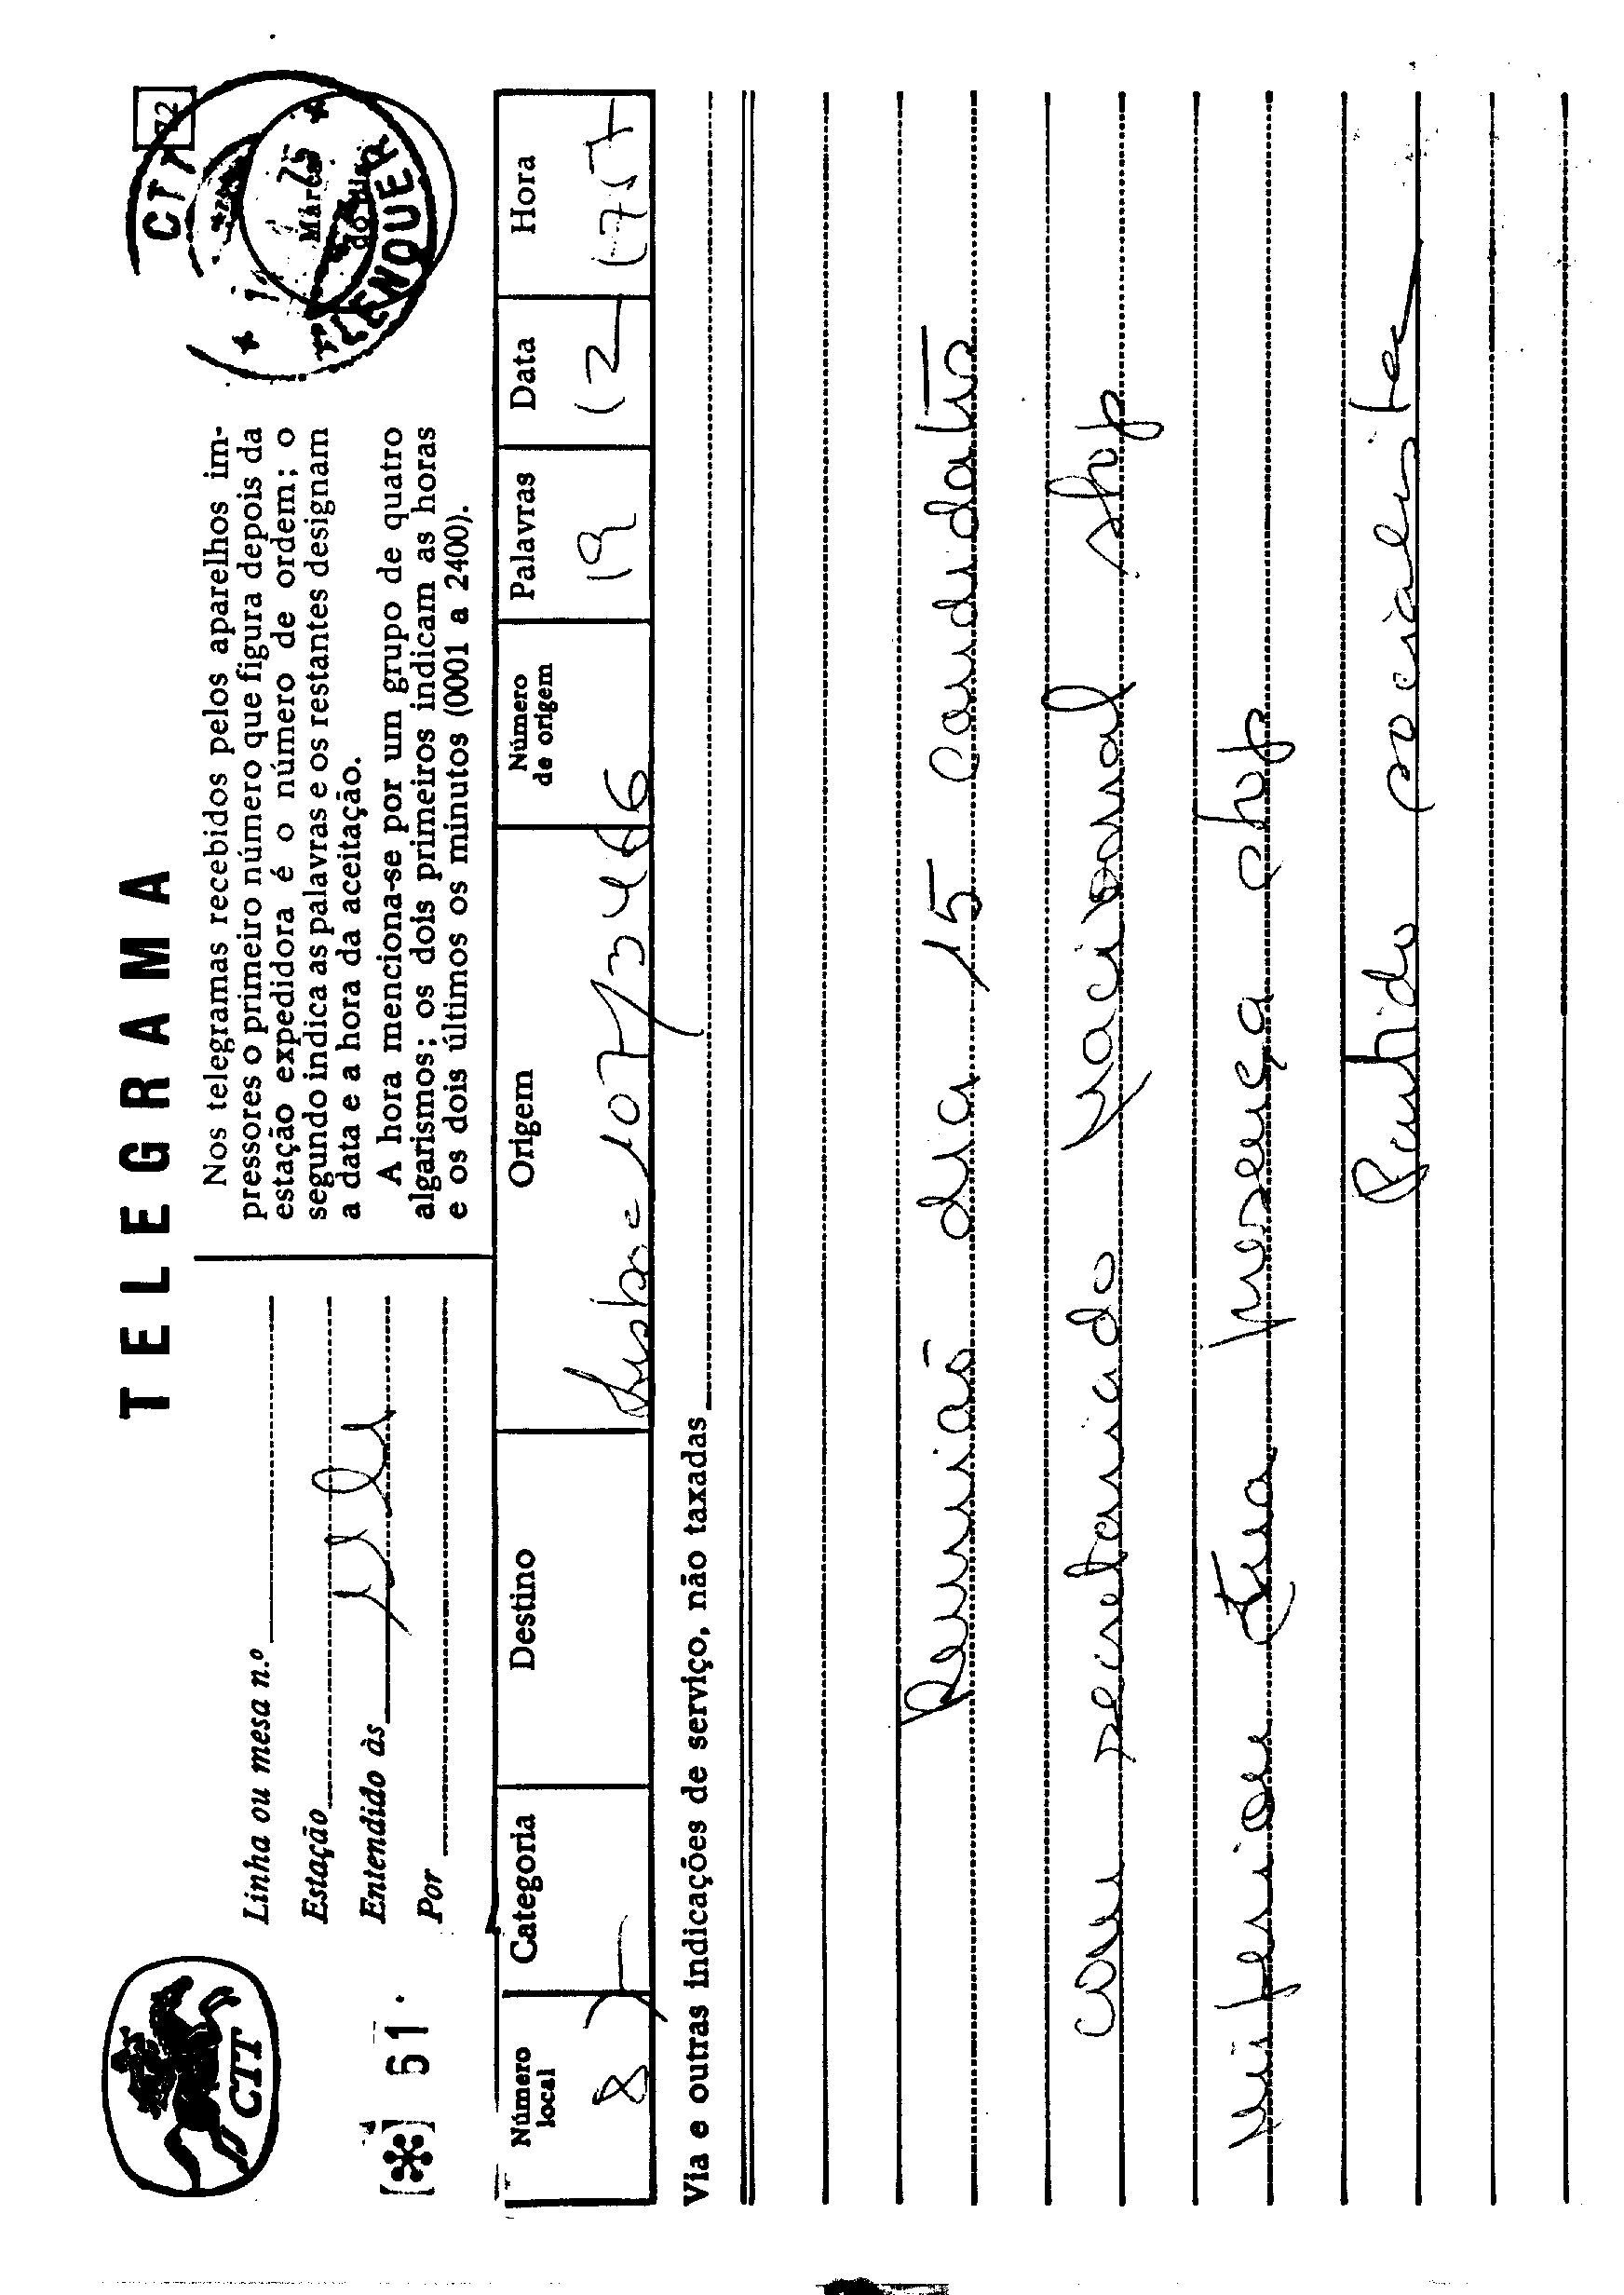 TELEGRAMA
72
CTT
CTT
ALENQUER
Março
75
Linha ou mesa n.º
Estação
Entendido às
Por
[*] 61
Nos telegramas recebidos pelos aparelhos im-
pressores o primeiro número que figura depois da
estação expedidora é o número de ordem; o
segundo indica as palavras e os restantes designam
a data e a hora da aceitação.
A hora menciona-se por um grupo de quatro
algarismos; os dois primeiros indicam as horas
e os dois últimos os minutos (0001 a 2400).
Número local Categoria Destino Origem Número de origem Palavras Data Hora
8 19 12
Via e outras indicações de serviço, não taxadas
Reunião dia 15 candidatos
com secretariado nacional stop
imperiosa tua presença stop
Partido socialista